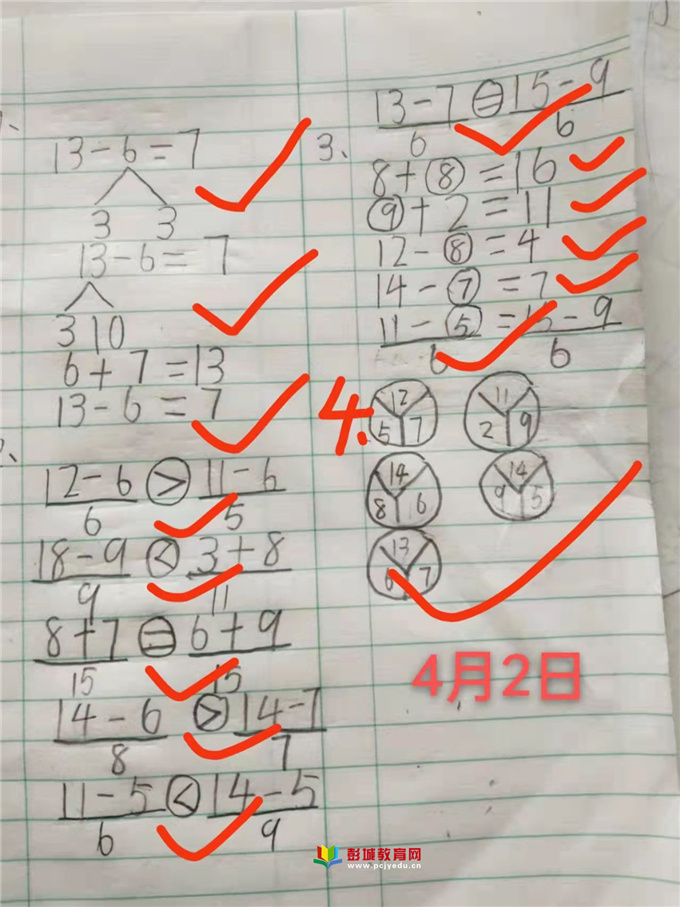 1、
13-6=7
3 3
13-6=7
3 10
6+7=13
13-6=7
2、
12-6 > 11-6
6 5
18-9 < 3+8
9 11
8+7 = 6+9
15 15
14-6 > 14-7
8 7
11-5 < 14-5
6 9
13-7 = 15-9
6 6
3、
8+⑧=16
⑨+2=11
12-⑧=4
14-⑦=7
11-⑤=15-9
6 6
4.
12
5 7
11
2 9
14
8 6
14
9 5
13
6 7
4月2日
彭城教育网
www.pcjyedu.cn